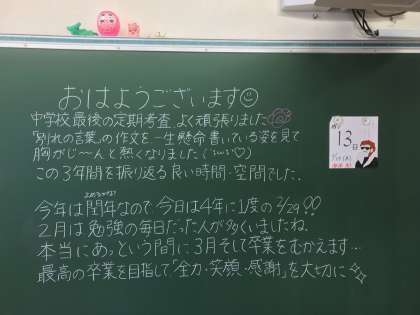 おはようございます☺
中学校最後の定期考査、よく頑張りました
「別れの言葉」の作文を一生懸命書いている姿を見て
胸がじ〜んと熱くなりました
この3年間を振り返る良い時間・空間でした。
今年は閏年なので、今日は4年に1度の2/29!!
2月は勉強の毎日だった人が多くいましたね。
本当にあっという間に3月そして卒業をむかえます…
最高の卒業を目指して「全力・笑顔・感謝」を大切に
13日